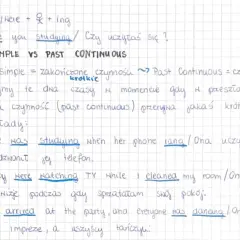 Here = & + ing
e you studying / Czy uczyłaś się?
MPLE VS PAST CONTINUOUS
simple = zakończone czynności ~> Past Continuous = cz
krótkie
my te dwa czasy w momencie gdy w przeszł
czynność (past continuous) przerywa jakaś krót
łady:
was studying when her phone rang / Ona uczy
dzwonił jej telefon.
y were watching TV while I cleaned my room / On
wizję podczas gdy sprzątałam swój pokój.
arrived at the party, and everyone was dancing /
imprezę, a wszyscy tańczyli.